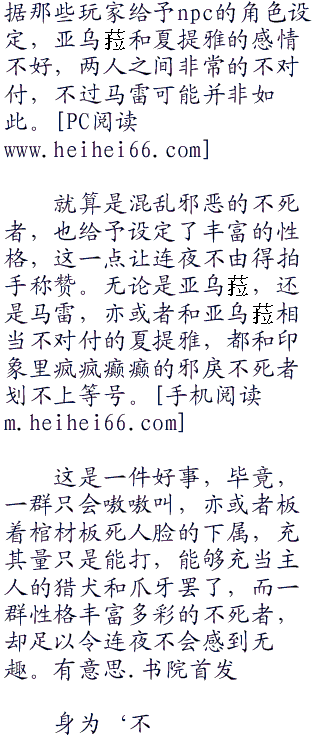 据那些玩家给予npc的角色设
定，亚乌菈和夏提雅的感情
不好，两人之间非常的不对
付，不过马雷可能并非如
此。[PC阅读
www.heihei66.com]
就算是混乱邪恶的不死
者，也给予设定了丰富的性
格，这一点让连夜不由得拍
手称赞。无论是亚乌菈，还
是马雷，亦或者和亚乌菈相
当不对付的夏提雅，都和印
象里疯疯癫癫的邪戾不死者
划不上等号。[手机阅读
m.heihei66.com]
这是一件好事，毕竟，
一群只会嗷嗷叫，亦或者板
着棺材板死人脸的下属，充
其量只是能打，能够充当主
人的猎犬和爪牙罢了，而一
群性格丰富多彩的不死者，
却足以令连夜不会感到无
趣。有意思.书院首发
身为‘不